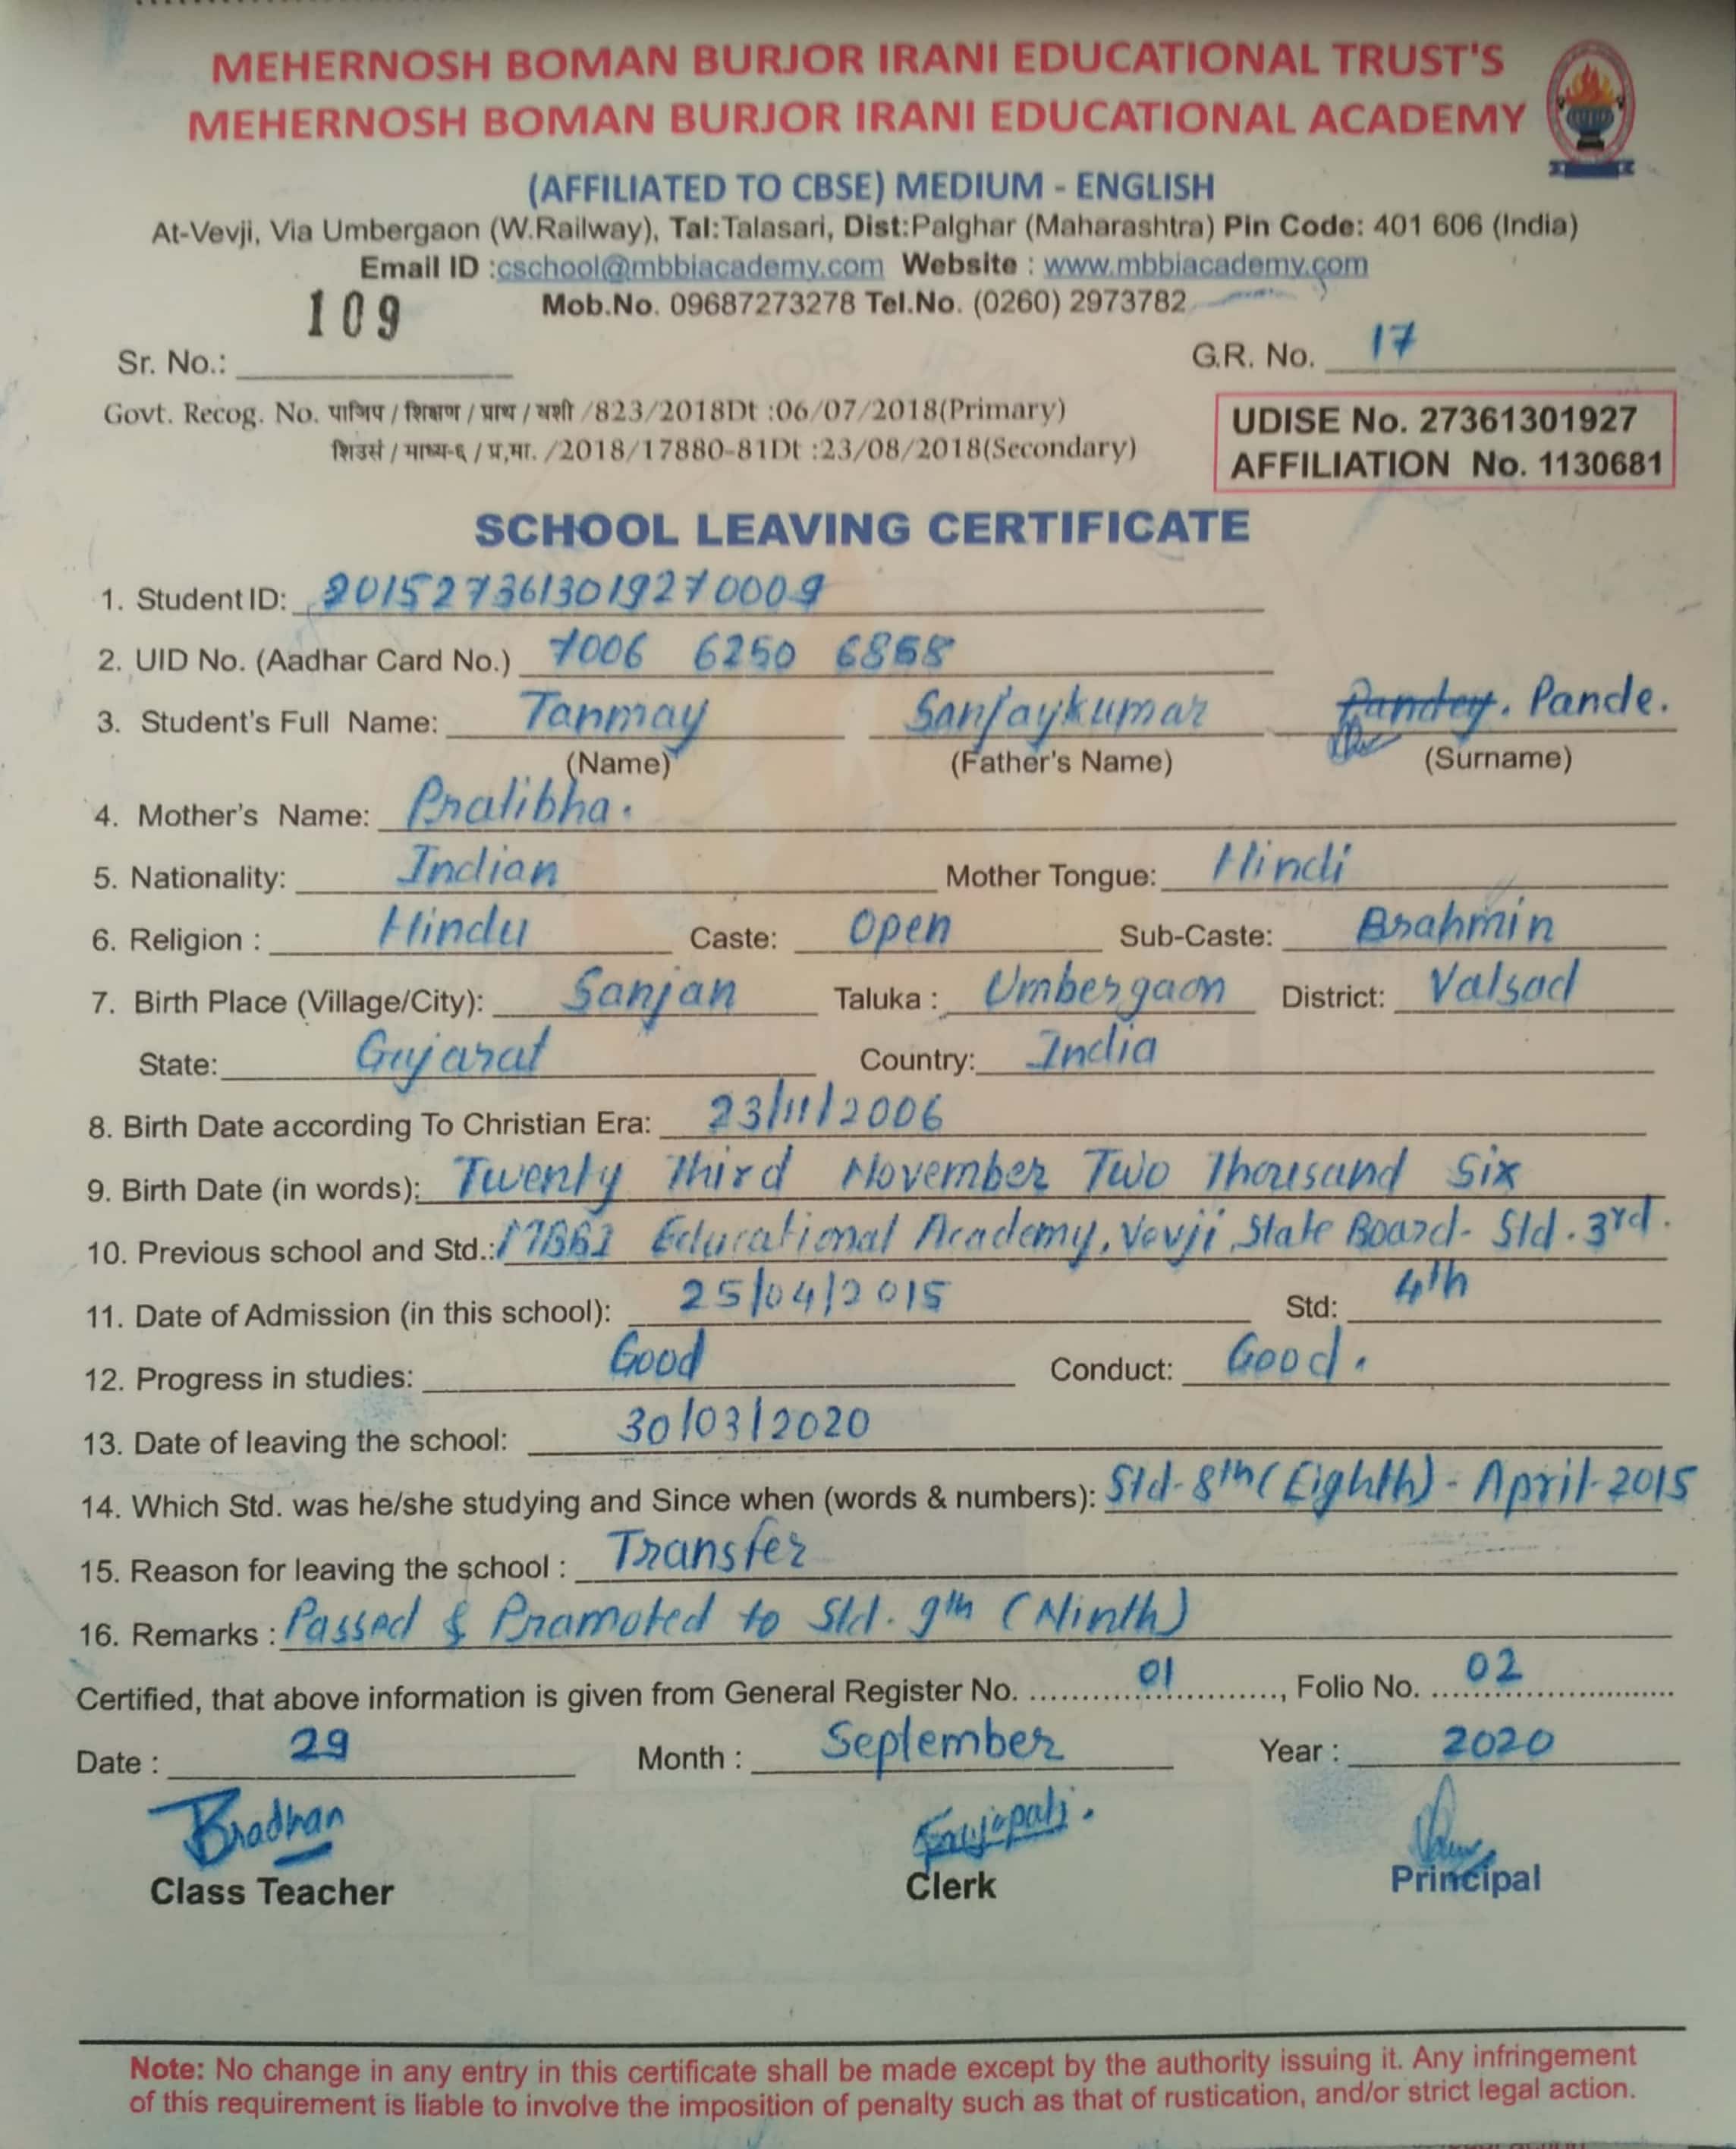 MEHERNOSH BOMAN BURJOR IRANI EDUCATIONAL TRUST'S
MEHERNOSH BOMAN BURJOR IRANI EDUCATIONAL ACADEMY
(AFFILIATED TO CBSE) MEDIUM - ENGLISH
At-Vevji, Via Umbergaon (W.Railway), Tal:Talasari, Dist:Palghar (Maharashtra) Pin Code: 401 606 (India)
Email ID :cschool@mbbiacademy.com Website : www.mbbiacademy.com
Mob.No. 09687273278 Tel.No. (0260) 2973782
Sr. No.: 109 G.R. No. 17
Govt. Recog. No. पाजिप / शिक्षण / प्राथ / वशी /823/2018Dt :06/07/2018(Primary)
शिउसं / माध्य-६ / प्र,मा. /2018/17880-81Dt :23/08/2018(Secondary)
UDISE No. 27361301927
AFFILIATION No. 1130681
SCHOOL LEAVING CERTIFICATE
1. Student ID: 2015273613019270009
2. UID No. (Aadhar Card No.) 7006 6250 6858
3. Student's Full Name: Tanmay Sanjaykumar Pandey. Pande.
(Name) (Father's Name) (Surname)
4. Mother's Name: Pratibha.
5. Nationality: Indian Mother Tongue: Hindi
6. Religion : Hindu Caste: Open Sub-Caste: Brahmin
7. Birth Place (Village/City): Sanjan Taluka : Umbergaon District: Valsad
State: Gujarat Country: India
8. Birth Date according To Christian Era: 23/11/2006
9. Birth Date (in words): Twenty Third November Two Thousand Six
10. Previous school and Std.: MBBI Educational Academy, Vevji, State Board- Std. 3rd.
11. Date of Admission (in this school): 25/04/2015 Std: 4th
12. Progress in studies: Good Conduct: Good.
13. Date of leaving the school: 30/03/2020
14. Which Std. was he/she studying and Since when (words & numbers): Std-8th (Eighth) - April-2015
15. Reason for leaving the school : Transfer
16. Remarks : Passed & Promoted to Std. 9th (Ninth)
Certified, that above information is given from General Register No. 01, Folio No. 02
Date : 29 Month : September Year : 2020
Class Teacher Clerk Principal
Note: No change in any entry in this certificate shall be made except by the authority issuing it. Any infringement
of this requirement is liable to involve the imposition of penalty such as that of rustication, and/or strict legal action.